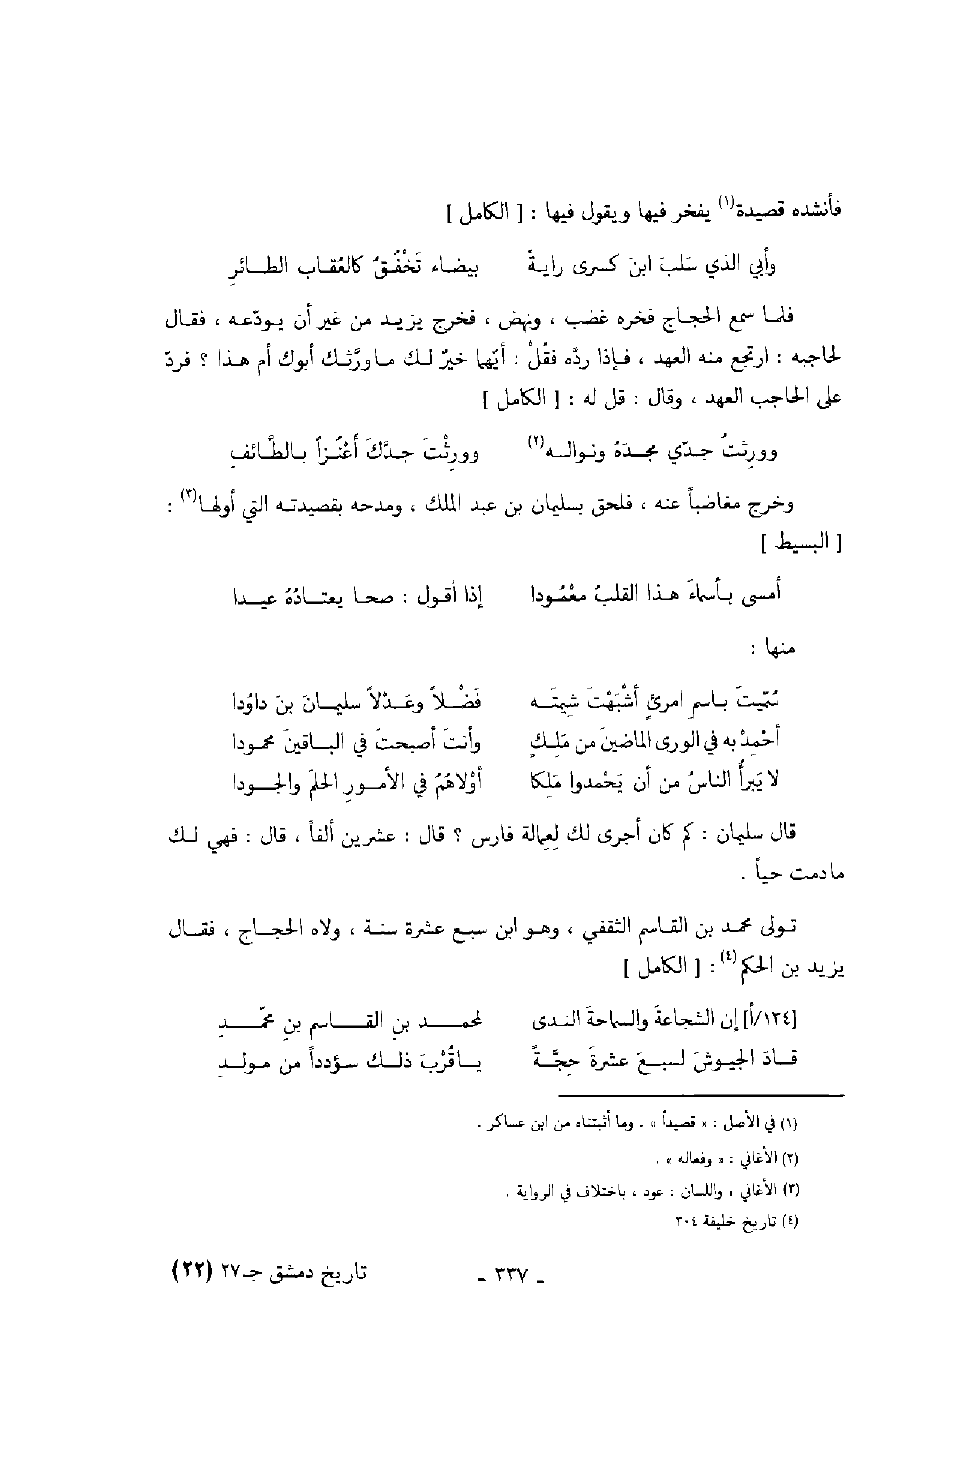 فأنشده قصيدة(١) يفخر فيها ويقول فيها : [ الكامل ]
وأبي الذي سَلبَ ابنَ كسرى رايةً بيضاء تَخْفُقُ كالعُقاب الطائرِ
فلما سمع الحجاج فخره غضب ، ونهض ، فخرج يزيد من غير أن يودّعه ، فقال
لحاجبه : ارتجع منه العهد ، فإذا ردّه فقُلْ : أيّها خيرٌ لك ماورَّثك أبوك أم هذا ؟ فردّ
على الحاجب العهد ، وقال : قل له : [ الكامل ]
وورِثتُ جدّي مجدَهُ ونواله(٢) وورِثْتَ جدَّكَ أعْنُزاً بالطَّائفِ
وخرج مغاضباً عنه ، فلحق بسليمان بن عبد الملك ، ومدحه بقصيدته التي أولها(٣) :
[ البسيط ]
أمسى بأسماءَ هذا القلبُ معْمُودا إذا أقول : صحا يعتادُهُ عيدا
منها :
سُمّيتَ باسمِ امرئٍ أشْبَهْتَ شيمتَه فَضْلاً وعَدْلاً سليمانَ بنَ داوُدا
أحْمِدْ به في الورى الماضينَ من مَلِكٍ وأنتَ أصبحتَ في الباقينَ محمودا
لا يَبرأُ الناسُ من أن يَحْمدوا مَلِكا أوْلاهُمُ في الأمورِ الحلمَ والجودا
قال سليمان : كم كان أجرى لك لِعِمالة فارس ؟ قال : عشرين ألفاً ، قال : فهي لك
مادمت حياً .
تولى محمد بن القاسم الثقفي ، وهو ابن سبع عشرة سنة ، ولاه الحجاج ، فقال
يزيد بن الحكم(٤) : [ الكامل ]
[١٢٤/أ] إن الشجاعةَ والسماحةَ الندى لمحمد بنِ القاسم بنِ محمّدِ
قادَ الجيوشَ لسبعَ عشرةَ حجّةً ياقُرْبَ ذلك سؤدداً من مولدِ
(١) في الأصل : « قصيداً » . وما أثبتناه من ابن عساكر .
(٢) الأغاني : « وفعاله » .
(٣) الأغاني ، واللسان : عود ، باختلاف في الرواية .
(٤) تاريخ خليفة ٣٠٤
- ٣٣٧ - تاريخ دمشق جـ٢٧ (٢٢)